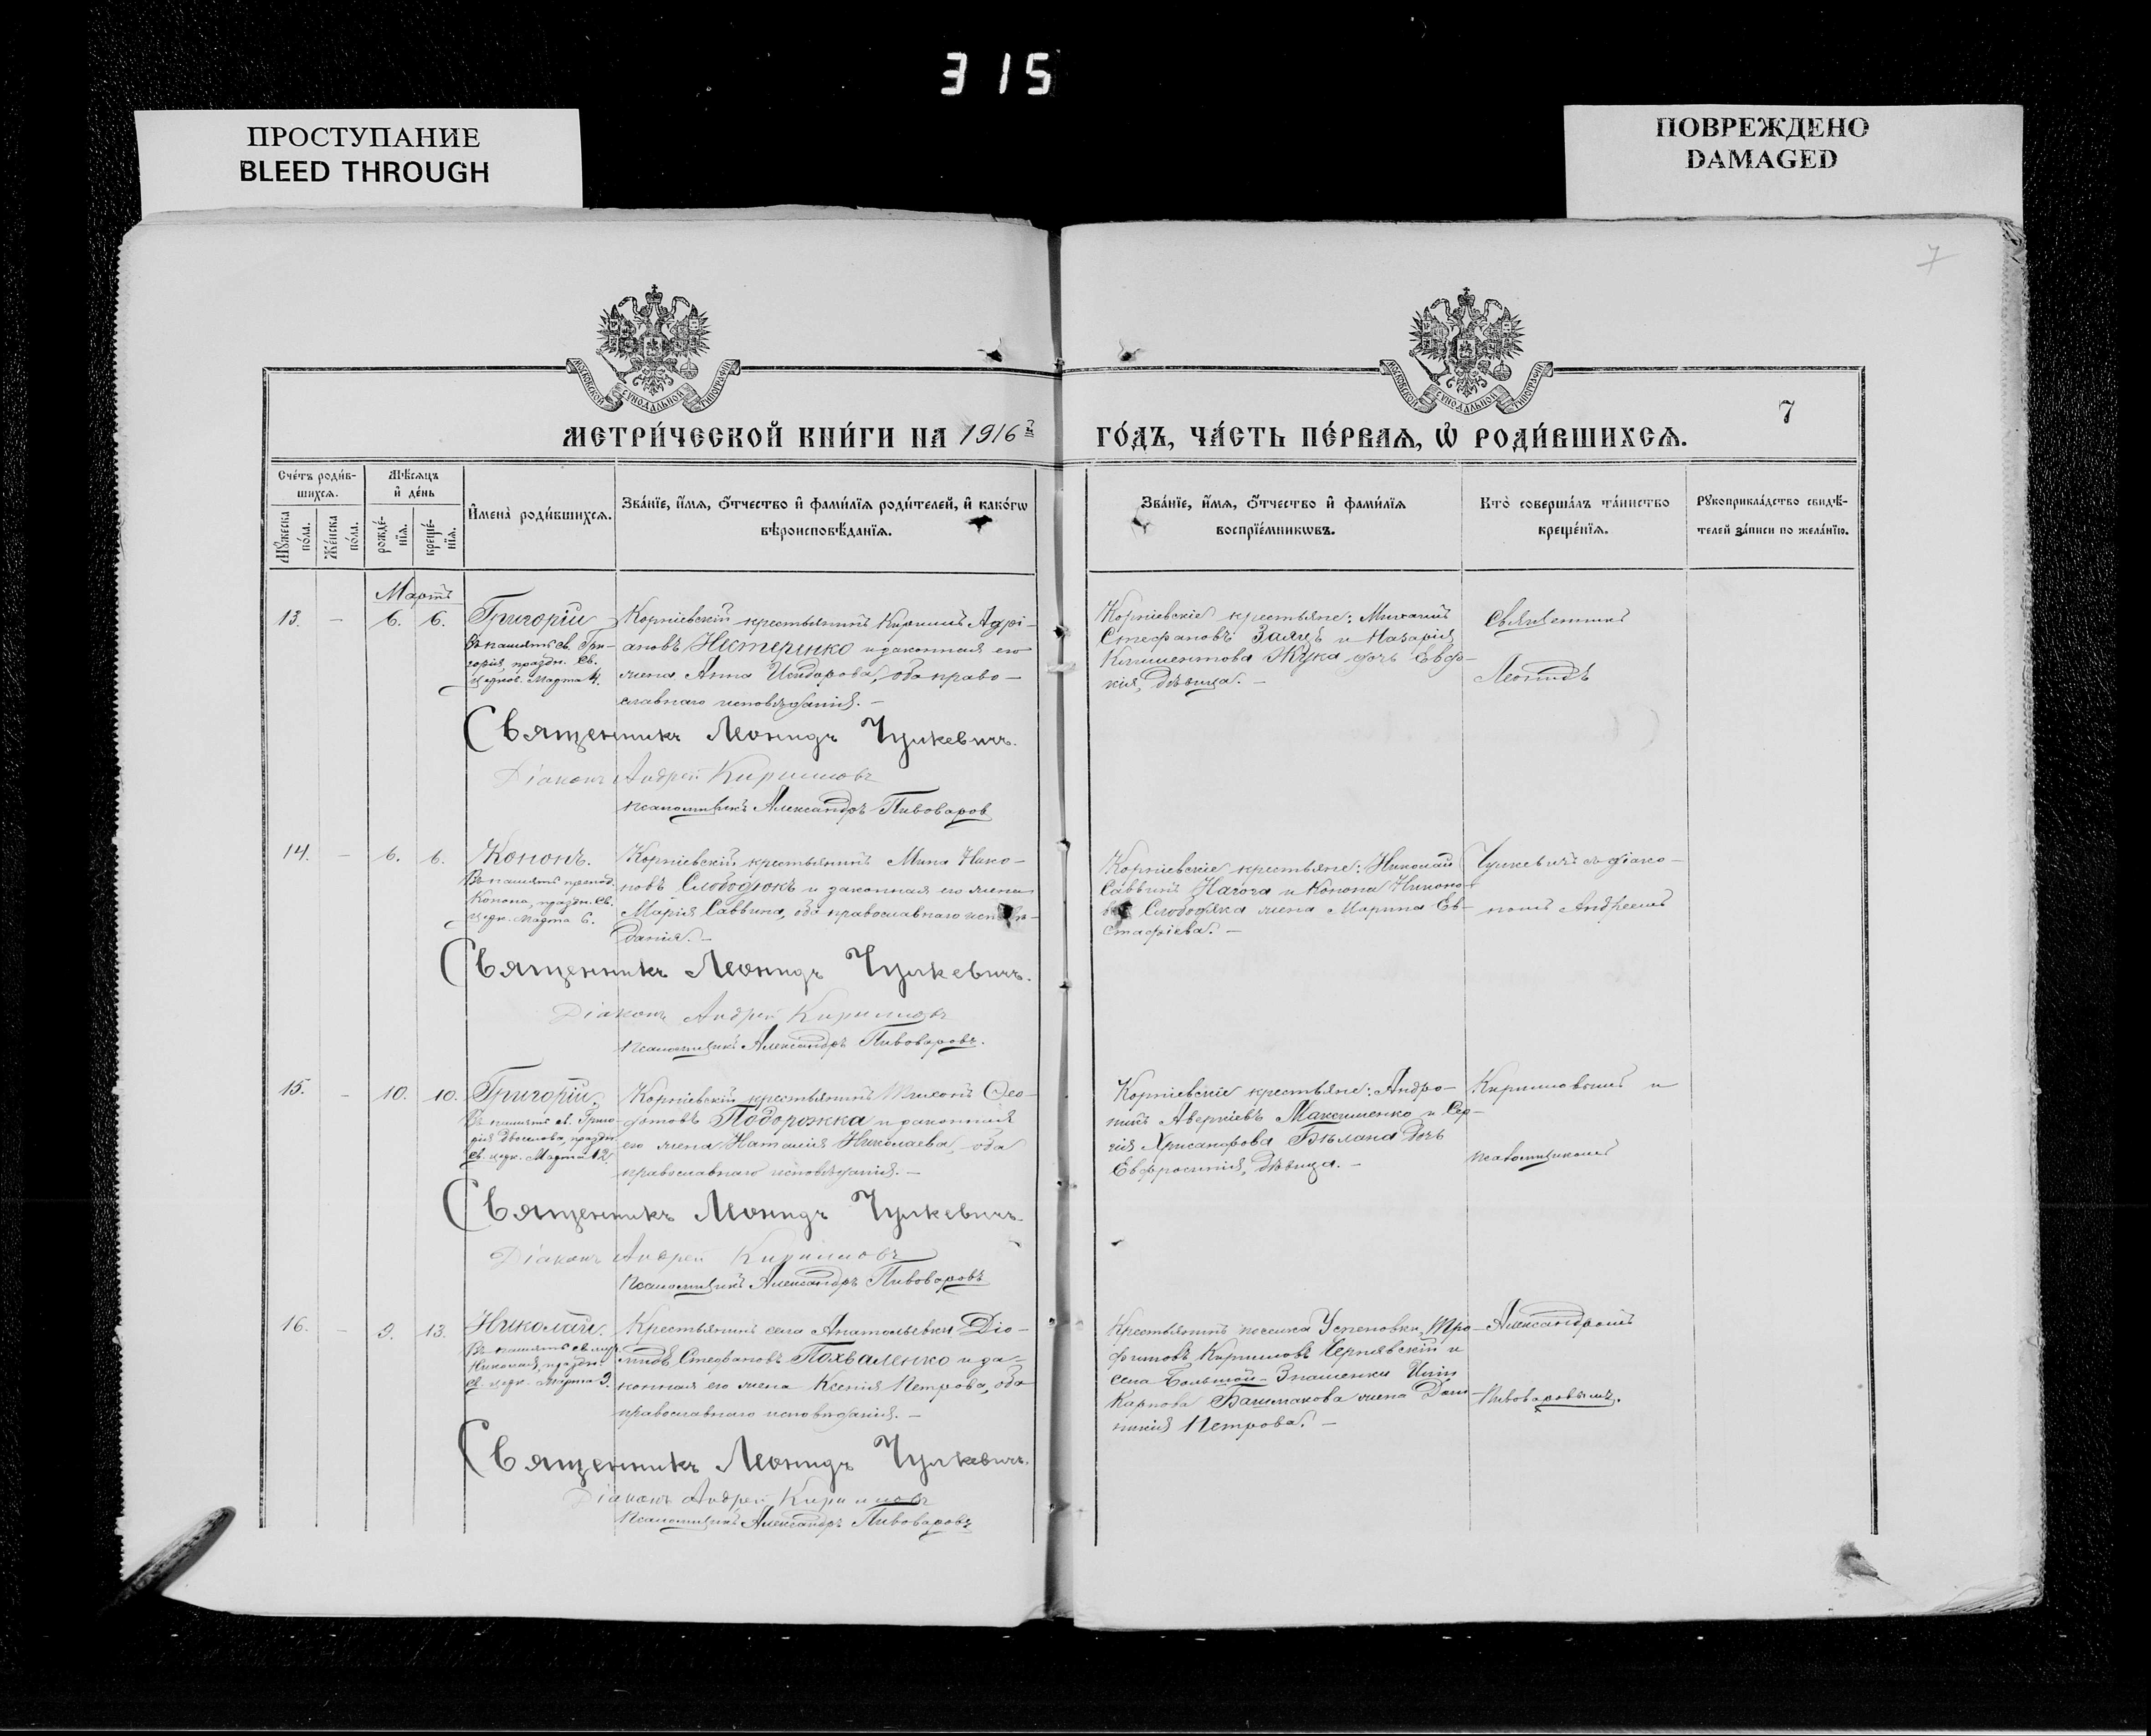 315
ПРОСТУПАНИЕ
BLEED THROUGH
ПОВРЕЖДЕНО
DAMAGED
7
МОСКОВСКОЙ СУНОДАЛЬНОЙ ТИПОГРАФІИ
МОСКОВСКОЙ СУНОДАЛЬНОЙ ТИПОГРАФІИ
7
МЕТРИ́ЧЕСКОЙ КНИ́ГИ НА 1916й
ГО́ДЪ, ЧА́СТЬ ПЕ́РВАѦ, Ѡ РОДИ́ВШИХСѦ.
Сче́тъ роди́в-
шихсѧ.
Мꙋ́жеска по́ла.
Же́нска по́ла.
Мѣ́сѧцъ
и҆ де́нь
рожде́-
нїѧ.
креще́-
нїѧ.
И҆мена̀ роди́вшихсѧ.
Зва́нїе, и҆́мѧ, ѻ҆́тчество и҆ фами́лїѧ роди́телей, и҆ како́гѡ
вѣроисповѣ́данїѧ.
Зва́нїе, и҆́мѧ, ѻ҆́тчество и҆ фами́лїѧ
воспрїе́мникѡвъ.
Кто̀ соверша́лъ та́инство
креще́нїѧ.
Рꙋкоприкла́дство свидѣ́-
телей за́писи по жела́нїю.
Мартъ
13. - 6. 6. Григорій
Въ память св. Гри-
горія, праздн. Св.
Церков. Марта 4.
Корніевскій крестьянинъ Кириллъ Адрі-
ановъ Нестеренко и законная его
жена Анна Исидорова, оба право-
славнаго исповѣданія. -
Священникъ Леонидъ Чулкевичъ.
Діаконъ Андрей Кирилловъ
псаломщикъ Александръ Пивоваров
Корніевскіе крестьяне: Михаилъ
Стефановъ Заяцъ и Назарія
Климентова Жука дочь Евдо-
кія, дѣвица. -
Священник
Леонидъ
14. - 6. 6. Кононъ.
Въ память препод.
Конона, праздн. Св.
Церк. Марта 6.
Корніевскій крестьянинъ Мина Нико-
новъ Слободюкъ и законная его жена
Марія Саввина, оба православнаго исповѣ-
данія. -
Священникъ Леонидъ Чулкевичъ.
Діаконъ Андрей Кирилловъ
псаломщикъ Александръ Пивоваровъ.
Корніевскіе крестьяне: Николай
Саввинъ Нагога и Конона Никоно-
ва Слободяка жена Марина Ев-
стафіева. -
Чулкевичъ съ діако-
номъ Андреемъ
15. - 10. 10. Григорій
Въ память св. Григо-
рія Двоеслова, праздн.
Св. церк. Марта 12.
Корніевскій крестьянинъ Тихонъ Ѳео-
дотовъ Подорожка и законная
его жена Наталія Николаева, оба
православнаго исповѣданія. -
Священникъ Леонидъ Чулкевичъ
Діаконъ Андрей Кирилловъ
псаломщикъ Александръ Пивоваровъ
Корніевскіе крестьяне: Андро-
никъ Аверкіевъ Максименко и Сер-
гія Хрисанфова Бѣлана дочь
Евфросинія, дѣвица. -
Кирилловымъ и
псаломщикомъ
16. - 9. 13. Николай.
Въ память св. муч.
Николая, праздн.
св. церк. Марта 9.
Крестьянинъ села Анатольевки Діо-
мидъ Стефановъ Похваленко и за-
конная его жена Ксенія Петрова, оба
православнаго исповѣданія. -
Священникъ Леонидъ Чулкевичъ.
Діаконъ Андрей Кирилловъ
псаломщикъ Александръ Пивоваровъ
Крестьянинъ поселка Успеновки Тро-
фимовъ Кирилловъ Чернявскій и
села Большой-Знаменки
Карпова Башмакова жена Дом-
никія Петрова. -
Александромъ
Пивоваровымъ.